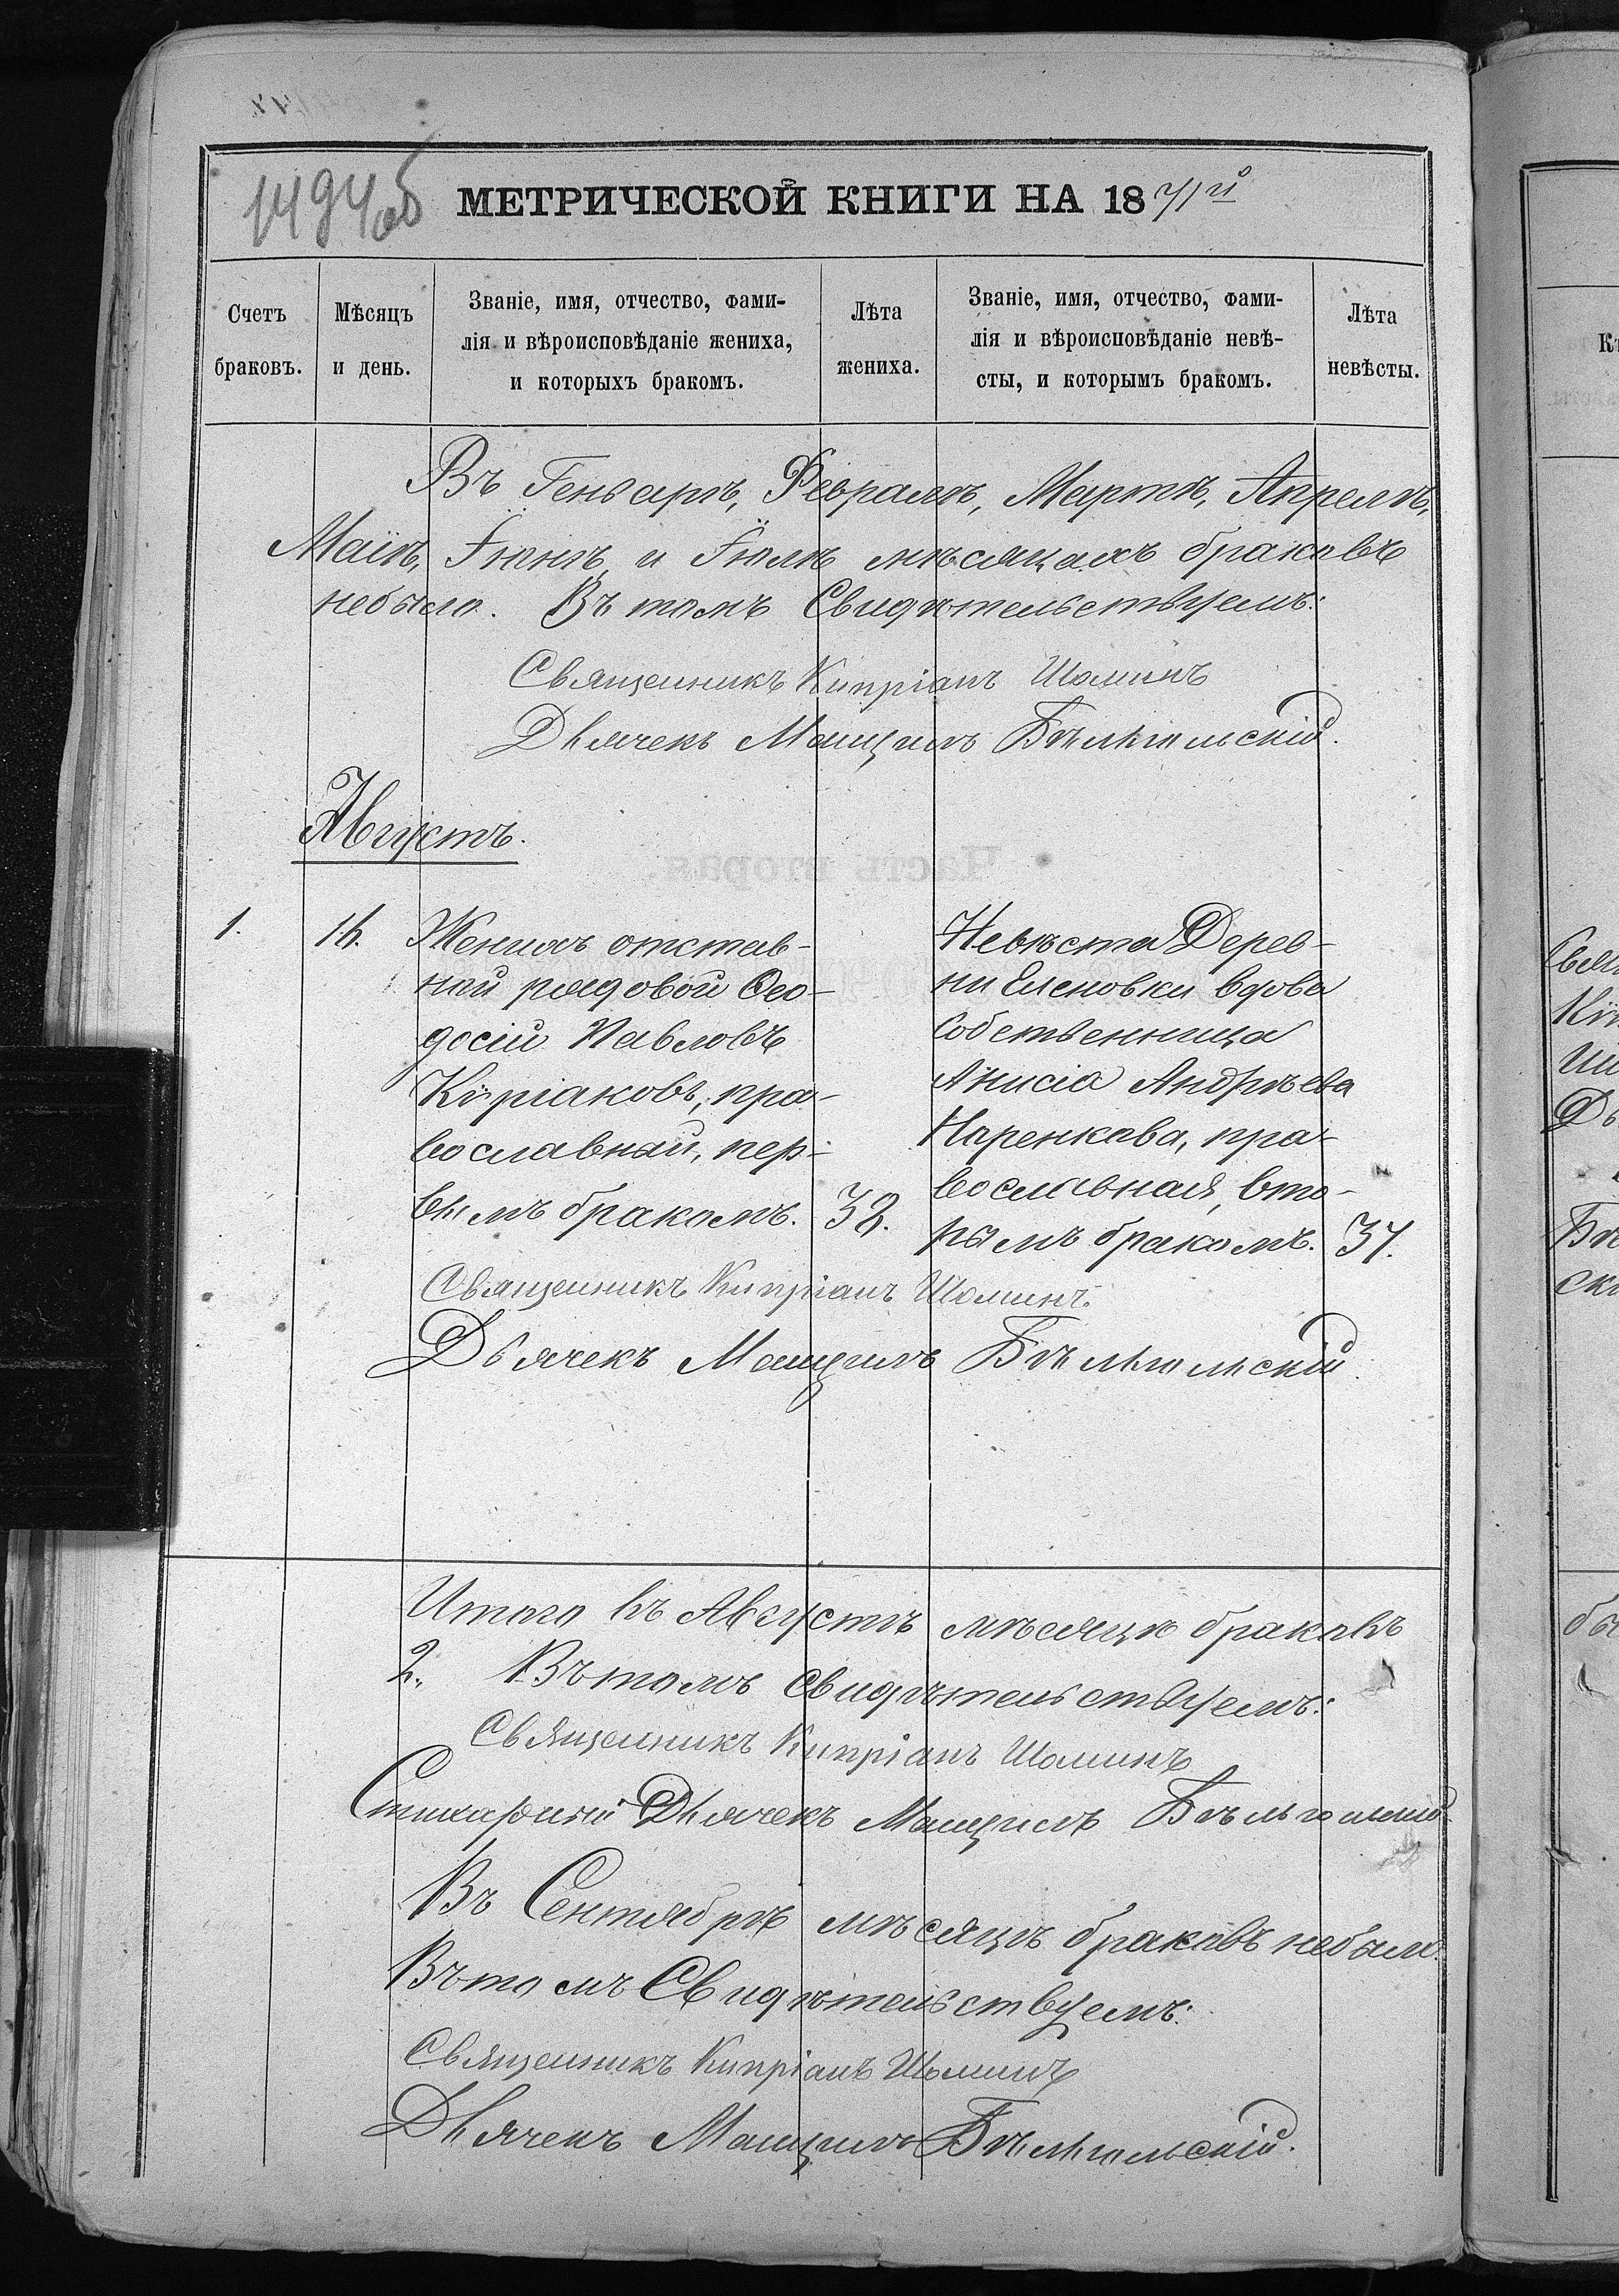 1494об
МЕТРИЧЕСКОЙ КНИГИ НА 1871й
Счетъ браковъ.
Мѣсяцъ и день.
Званіе, имя, отчество, фами-
лія и вѣроисповѣданіе жениха,
и которыхъ бракомъ.
Лѣта жениха.
Званіе, имя, отчество, фами-
лія и вѣроисповѣданіе невѣ-
сты, и которымъ бракомъ.
Лѣта невѣсты.
Въ Генварѣ, Февралѣ, Мартѣ, Апрелѣ,
Маіѣ, Іюнѣ и Іюлѣ мѣсяцахъ браковъ
небыло. Въ томъ Свидѣтельствуемъ:
Священникъ Кипріанъ Шоминъ
Дьячекъ
Августъ.
1. 16.
Женихъ отстав-
ной рядовой Ѳео-
досій Павловъ
Киріаковъ, пра-
вославный, пер-
вымъ бракомъ. 32.
Невѣста Дерев-
ни Еленовки вдова
Собственница
Анисія Андрѣева
Наренкова, пра-
вославная, вто-
рымъ бракомъ. 37.
Священникъ Кипріанъ Шоминъ
Дьячекъ
Итого въ Августѣ мѣсяцѣ браковъ
2. Въ томъ свидѣтельствуемъ:
Священникъ Кипріанъ Шоминъ
Стихарный Дьячекъ
Въ Сентябрѣ мѣсяцѣ браковъ небыло.
Въ томъ Свидѣтельствуемъ:
Священникъ Кипріанъ Шоминъ
Дьячекъ